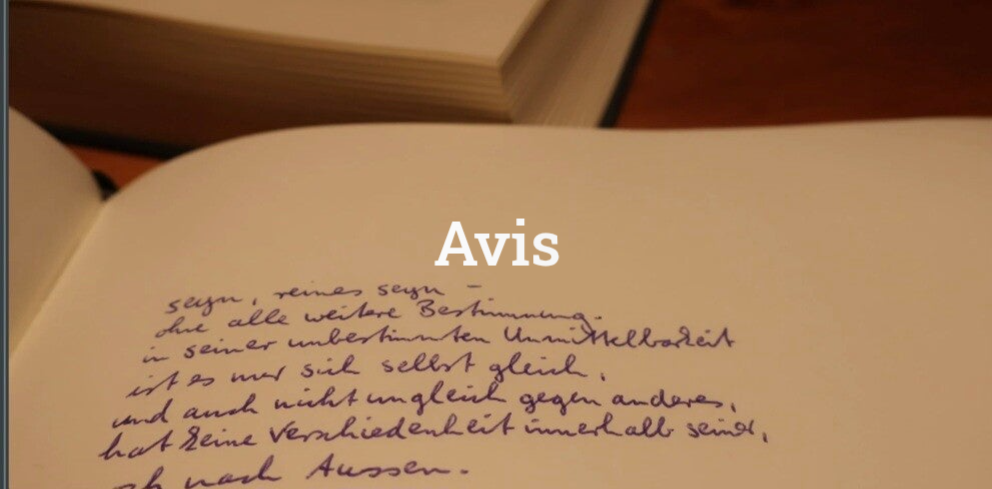 Avis
seyn, reines seyn –
ohne alle weitere Bestimmung.
in seiner unbestimmten Unmittelbarkeit
ist es nur sich selbst gleich,
und auch nicht ungleich gegen anderes,
hat keine Verschiedenheit innerhalb seiner,
nach Aussen.